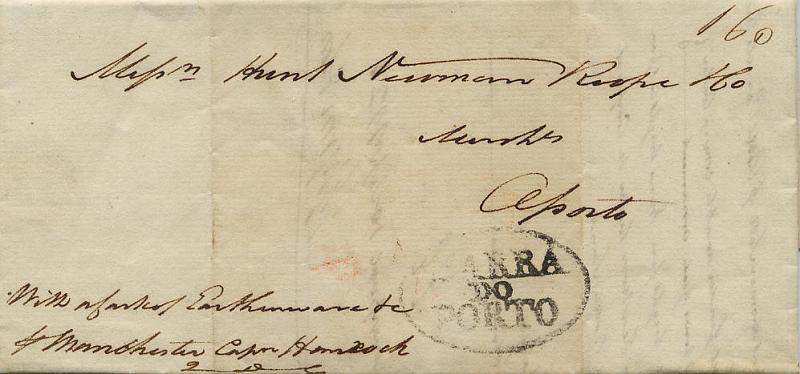 160
Messrs Hunt Newman Roope & Co
Merchts
Oporto
BARRA
DO
PORTO
With a cask of Earthenware &c
p Manchester Capn Hancock